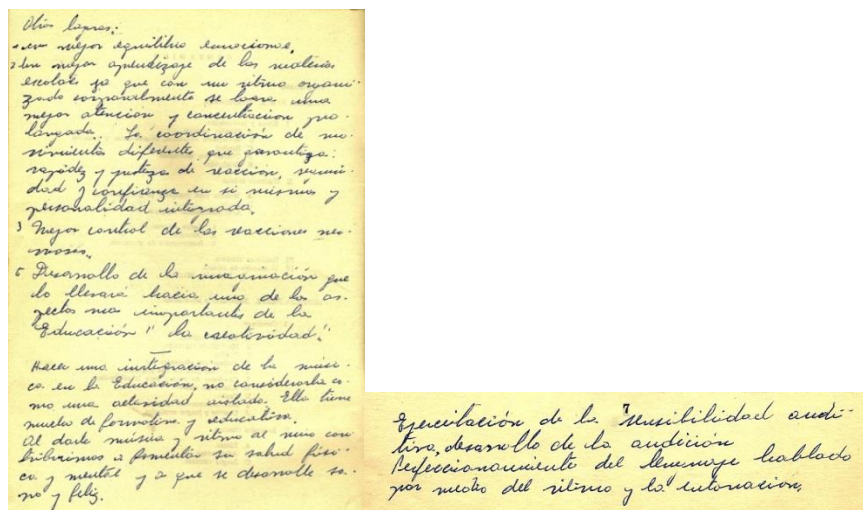 Otros logros:
1 un mejor equilibrio emocional.
2 Un mejor aprendizaje de las materias
escolares ya que con un ritmo organi-
zado corporalmente se logra una
mejor atención y concentración pro-
longada. La coordinación de mo-
vimientos diferentes que garantiza:
rapidez y justeza de reacción, seguri-
dad y confianza en si mismo y
personalidad integrada.
3 Mejor control de las reacciones ner-
viosas.
5 Desarrollo de la imaginación que
lo llevará hacia uno de los as-
pectos mas importantes de la
Educación "la creatividad".
Hacer una integración de la músi-
ca en la Educación, no considerarla co-
mo una actividad aislada. Ella tiene
mucho de formativa y educativa.
Al darle música y ritmo al niño con
tribuimos a fomentar su salud físi-
ca y mental y a que se desarrolle sa-
no y feliz.
Ejercitación de la sensibilidad audi-
tiva, desarrollo de la audición
Perfeccionamiento del lenguaje hablado
por medio del ritmo y la entonación.